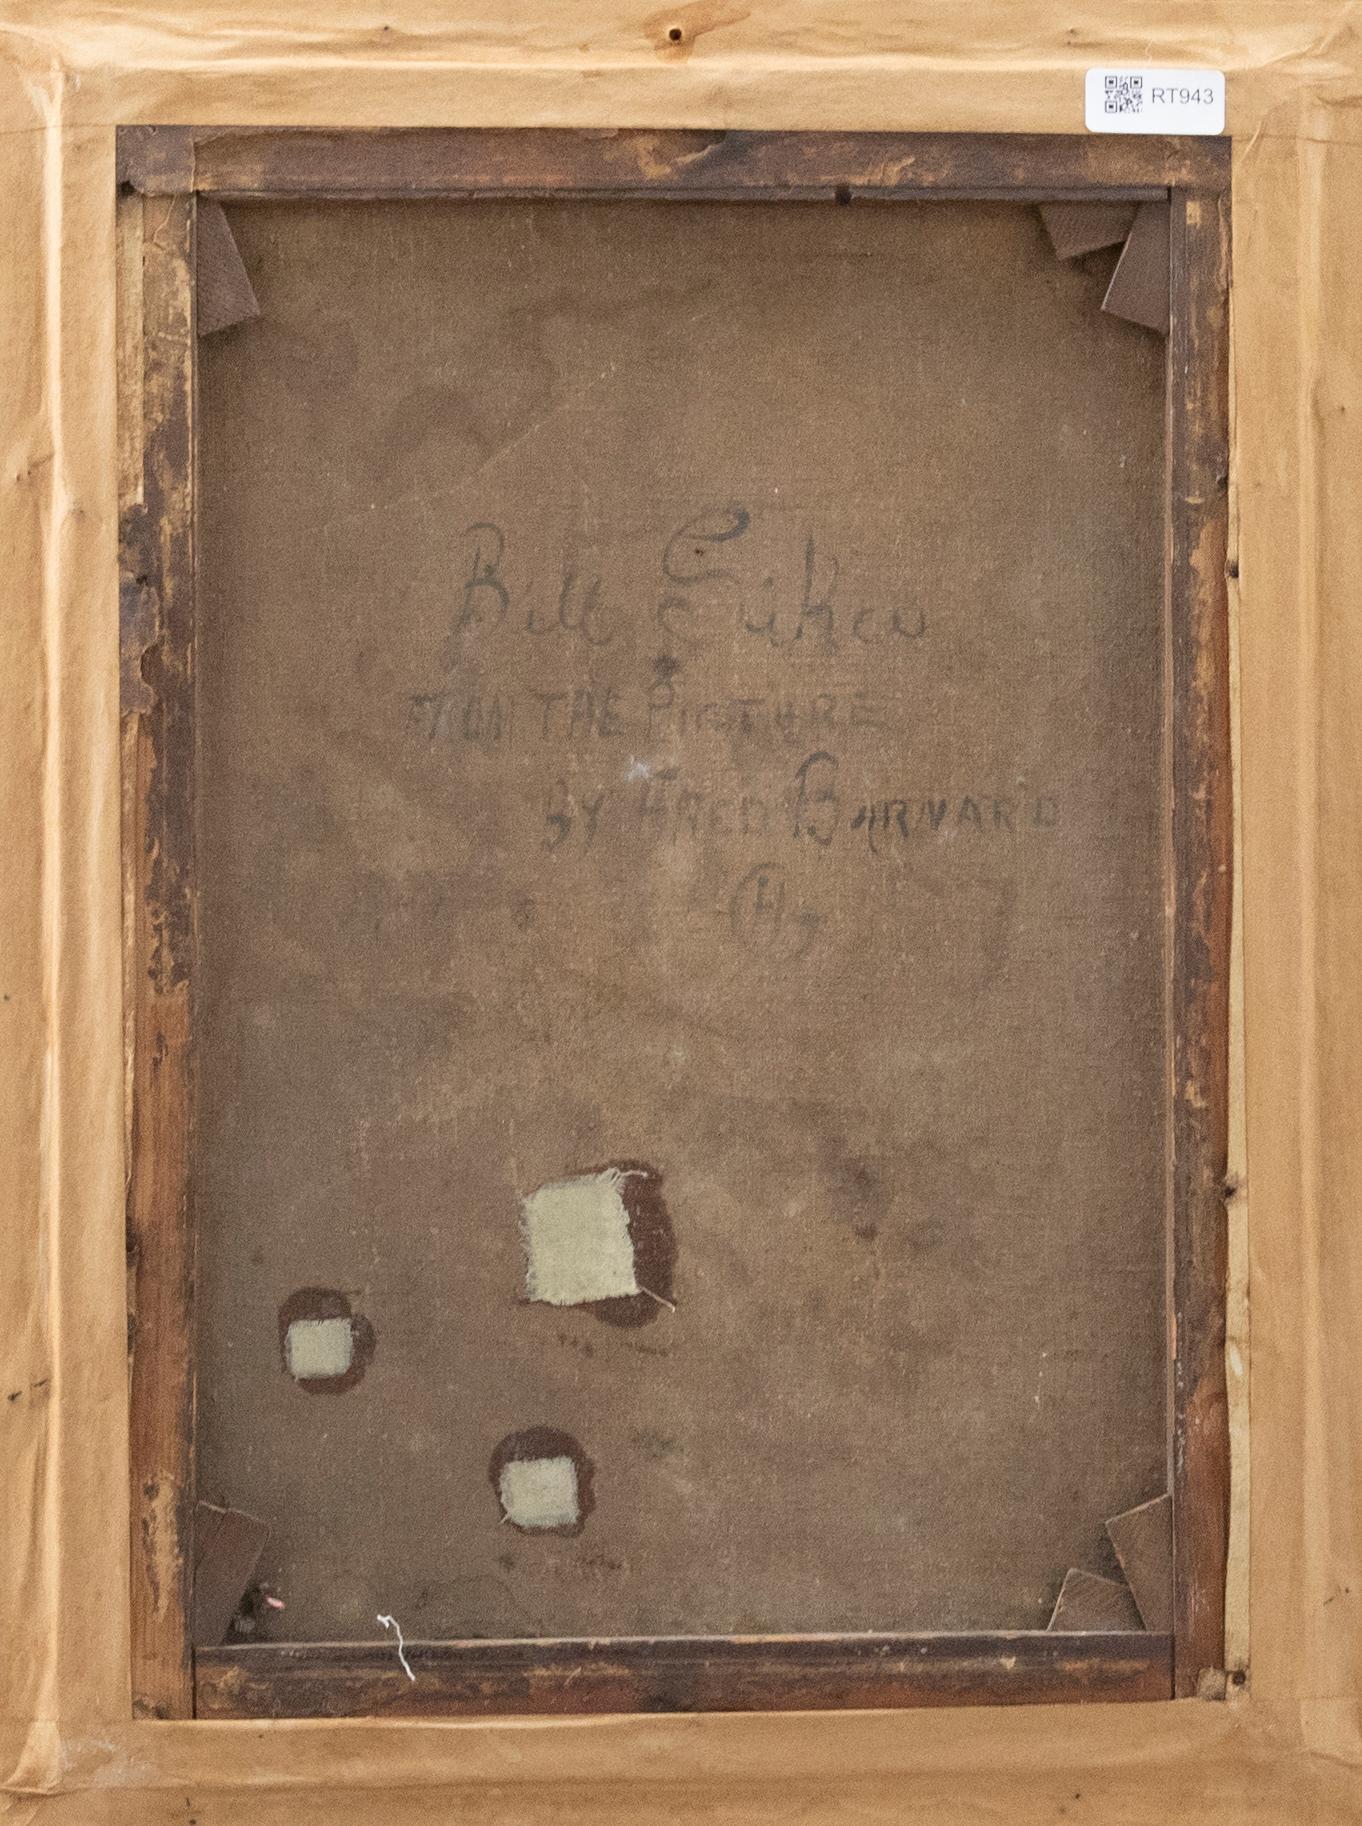 RT943
Bill Sikes
FROM THE PICTURE
BY FRED BARNARD